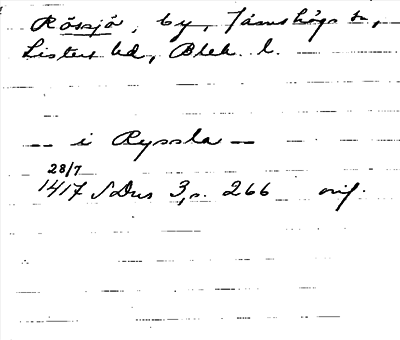 Rössjö, by, Jämshögs sn,
Listers hd, Blek. l.
-- i Ryssla --
28/7
1417 SDns 3, s. 266 orig.